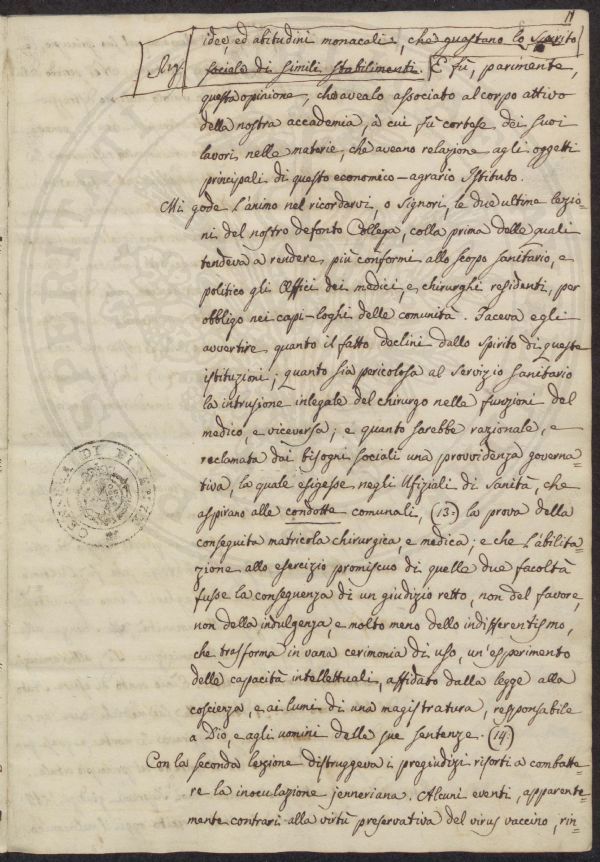 11
idee, ed abitudini monacali, che guastano lo spirito
sociale di simili stabilimenti. E fù, parimente,
questa opinione, che avealo associato al corpo attivo
della nostra accademia, à cui fù cortese dei suoi
lavori, nelle materie, che aveano relazione agli oggetti
principali di questo economico-agrario Istituto.
Mi gode l'animo nel ricordarvi, o Signori, le due ultime lezio-
ni del nostro defonto Collega, colla prima delle quali
tendeva a rendere più conformi allo scopo sanitario, e
politico gli Uffici dei medici, e chirurghi residenti, per
obbligo nei capi-loghi delle comunità. Faceva egli
avvertire quanto il fatto declini dallo spirito di queste
istituzioni; quanto sia pericolosa al servizio sanitario
la intrusione inlegale del chirurgo nelle funzioni del
medico, e viceversa; e quanto sarebbe razionale, e
reclamata dai bisogni sociali una provvidenza governa-
tiva, la quale esigesse negli Ufiziali di Sanità, che
aspirano alle condotte comunali, (13.) la prova della
conseguita matricola chirurgica, e medica; e che l'abilita-
zione allo esercizio promiscuo di quelle due facoltà
fusse la conseguenza di un giudizio retto, non del favore,
non della indulgenza, e molto meno dello indifferentismo,
che trasforma in vana cerimonia di uso, un'esperimento
delle capacità intellettuali, affidato dalla legge alla
coscienza, e ai lumi di una magistratura, responsabile
a Dio, e agli uomini delle sue sentenze. (14.)
Con la seconda lezione distruggeva i pregiudizi risorti a combatte-
re la inoculazione jenneriana. Alcuni eventi, apparente-
mente contrari alla virtù preservativa del virus vaccino, rin-